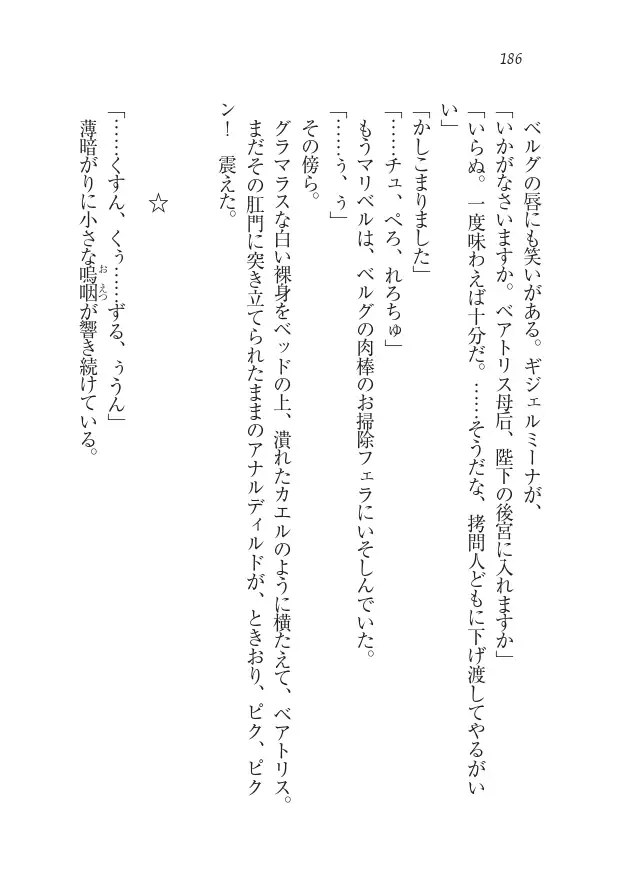 186
ベルグの唇にも笑いがある。ギジェルミーナが、
「いかがなさいますか。ベアトリス母后、陛下の後宮に入れますか」
「いらぬ。一度味わえば十分だ。……そうだな、拷問人どもに下げ渡してやるがい
い」
「かしこまりました」
「……チュ、ぺろ、れろちゅ」
もうマリベルは、ベルグの肉棒のお掃除フェラにいそしんでいた。
「……ぅ、ぅ」
その傍ら。
グラマラスな白い裸身をベッドの上、潰れたカエルのように横たえて、ベアトリス。
まだその肛門に突き立てられたままのアナルディルドが、ときおり、ピク、ピク
ン！　震えた。
☆
「……くすん、くぅ……ずる、ぅうん」
薄暗がりに小さな嗚咽おえつが響き続けている。